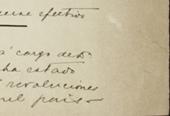 efectivo
a' cargo de
ha estado
revoluciones
país